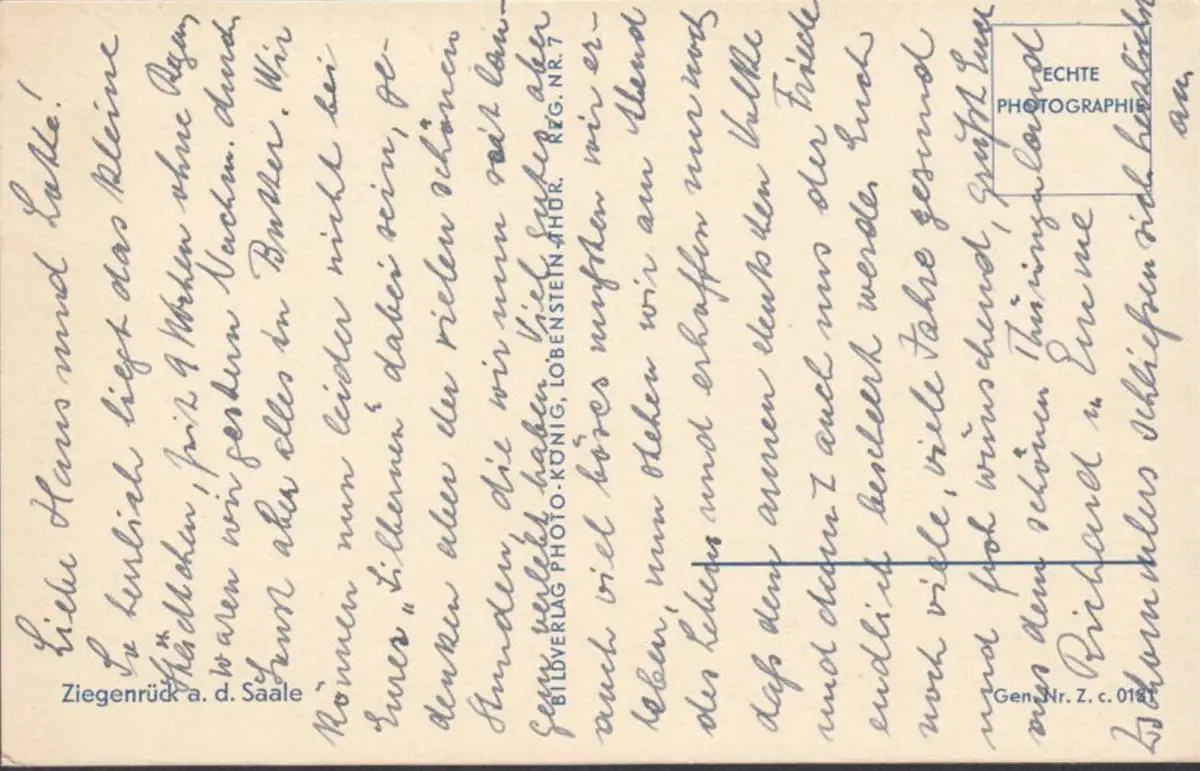 Liebe Hans und Lotte!
So herrlich liegt das kleine
Städtchen, seit 9 Wochen ohne Regen
waren wir gestern Nachm. durch
Sonst aber alles in Butter. Wir
können nun leider nicht bei
Eurer „Silbernen" dabei sein, ge-
denken aber der vielen schönen
Stunden, die wir nun seit lan-
gem verlebt haben. Viel Gutes aber
auch viel böses mußten wir er-
leben, nun stehen wir am Abend
des Lebens und erhoffen nur noch
daß dem armen deutschen Volke
und damit auch uns der Friede
endlich beschert werde. Euch
noch viele, viele Jahre gesund
und froh wünschend, grüßt Euch
aus dem schönen Thüringerland
Richard u Erna
schließen sich herzlichst
an.
Ziegenrück a. d. Saale
BILDVERLAG PHOTO-KÖNIG, LOBENSTEIN-THÜR. REG. NR. 7
ECHTE
PHOTOGRAPHIE
Gen. Nr. Z. c. 0181